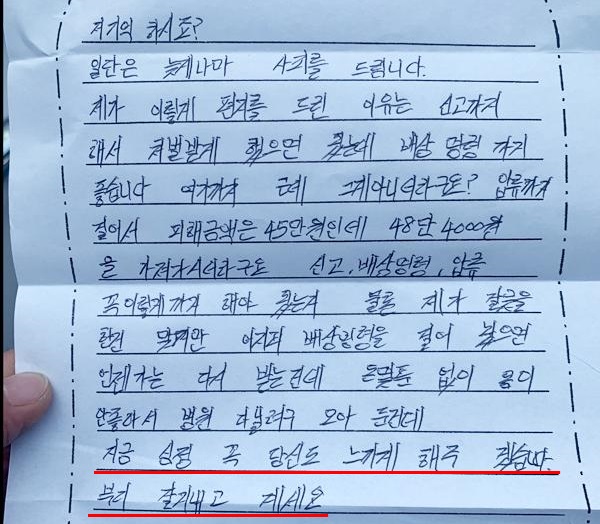 저기의 하시죠?
일단은 늦게나마 사죄를 드립니다.
제가 이렇게 편지를 드린 이유는 신고까지
해서 처벌받게 했으면 됐는데 배상 명령 까지
좋습니다 여기까지 근데 그게아니더라구요? 압류까지
걸어서 피해금액은 45만원인데 48만 4000원
을 가져가시더라구요 신고, 배상명령, 압류
꼭 이렇게 까지 해야 됐는지 물론 제가 잘못을
한건 맞지만 어차피 배상명령을 걸어 놨으면
언젠가는 다시 받는건데 몸이
안좋아서 병원 다닐려구 모아 둔건데
지금 심정 꼭 당신도 느끼게 해주 겠습니다.
부디 잘지내고 계세요